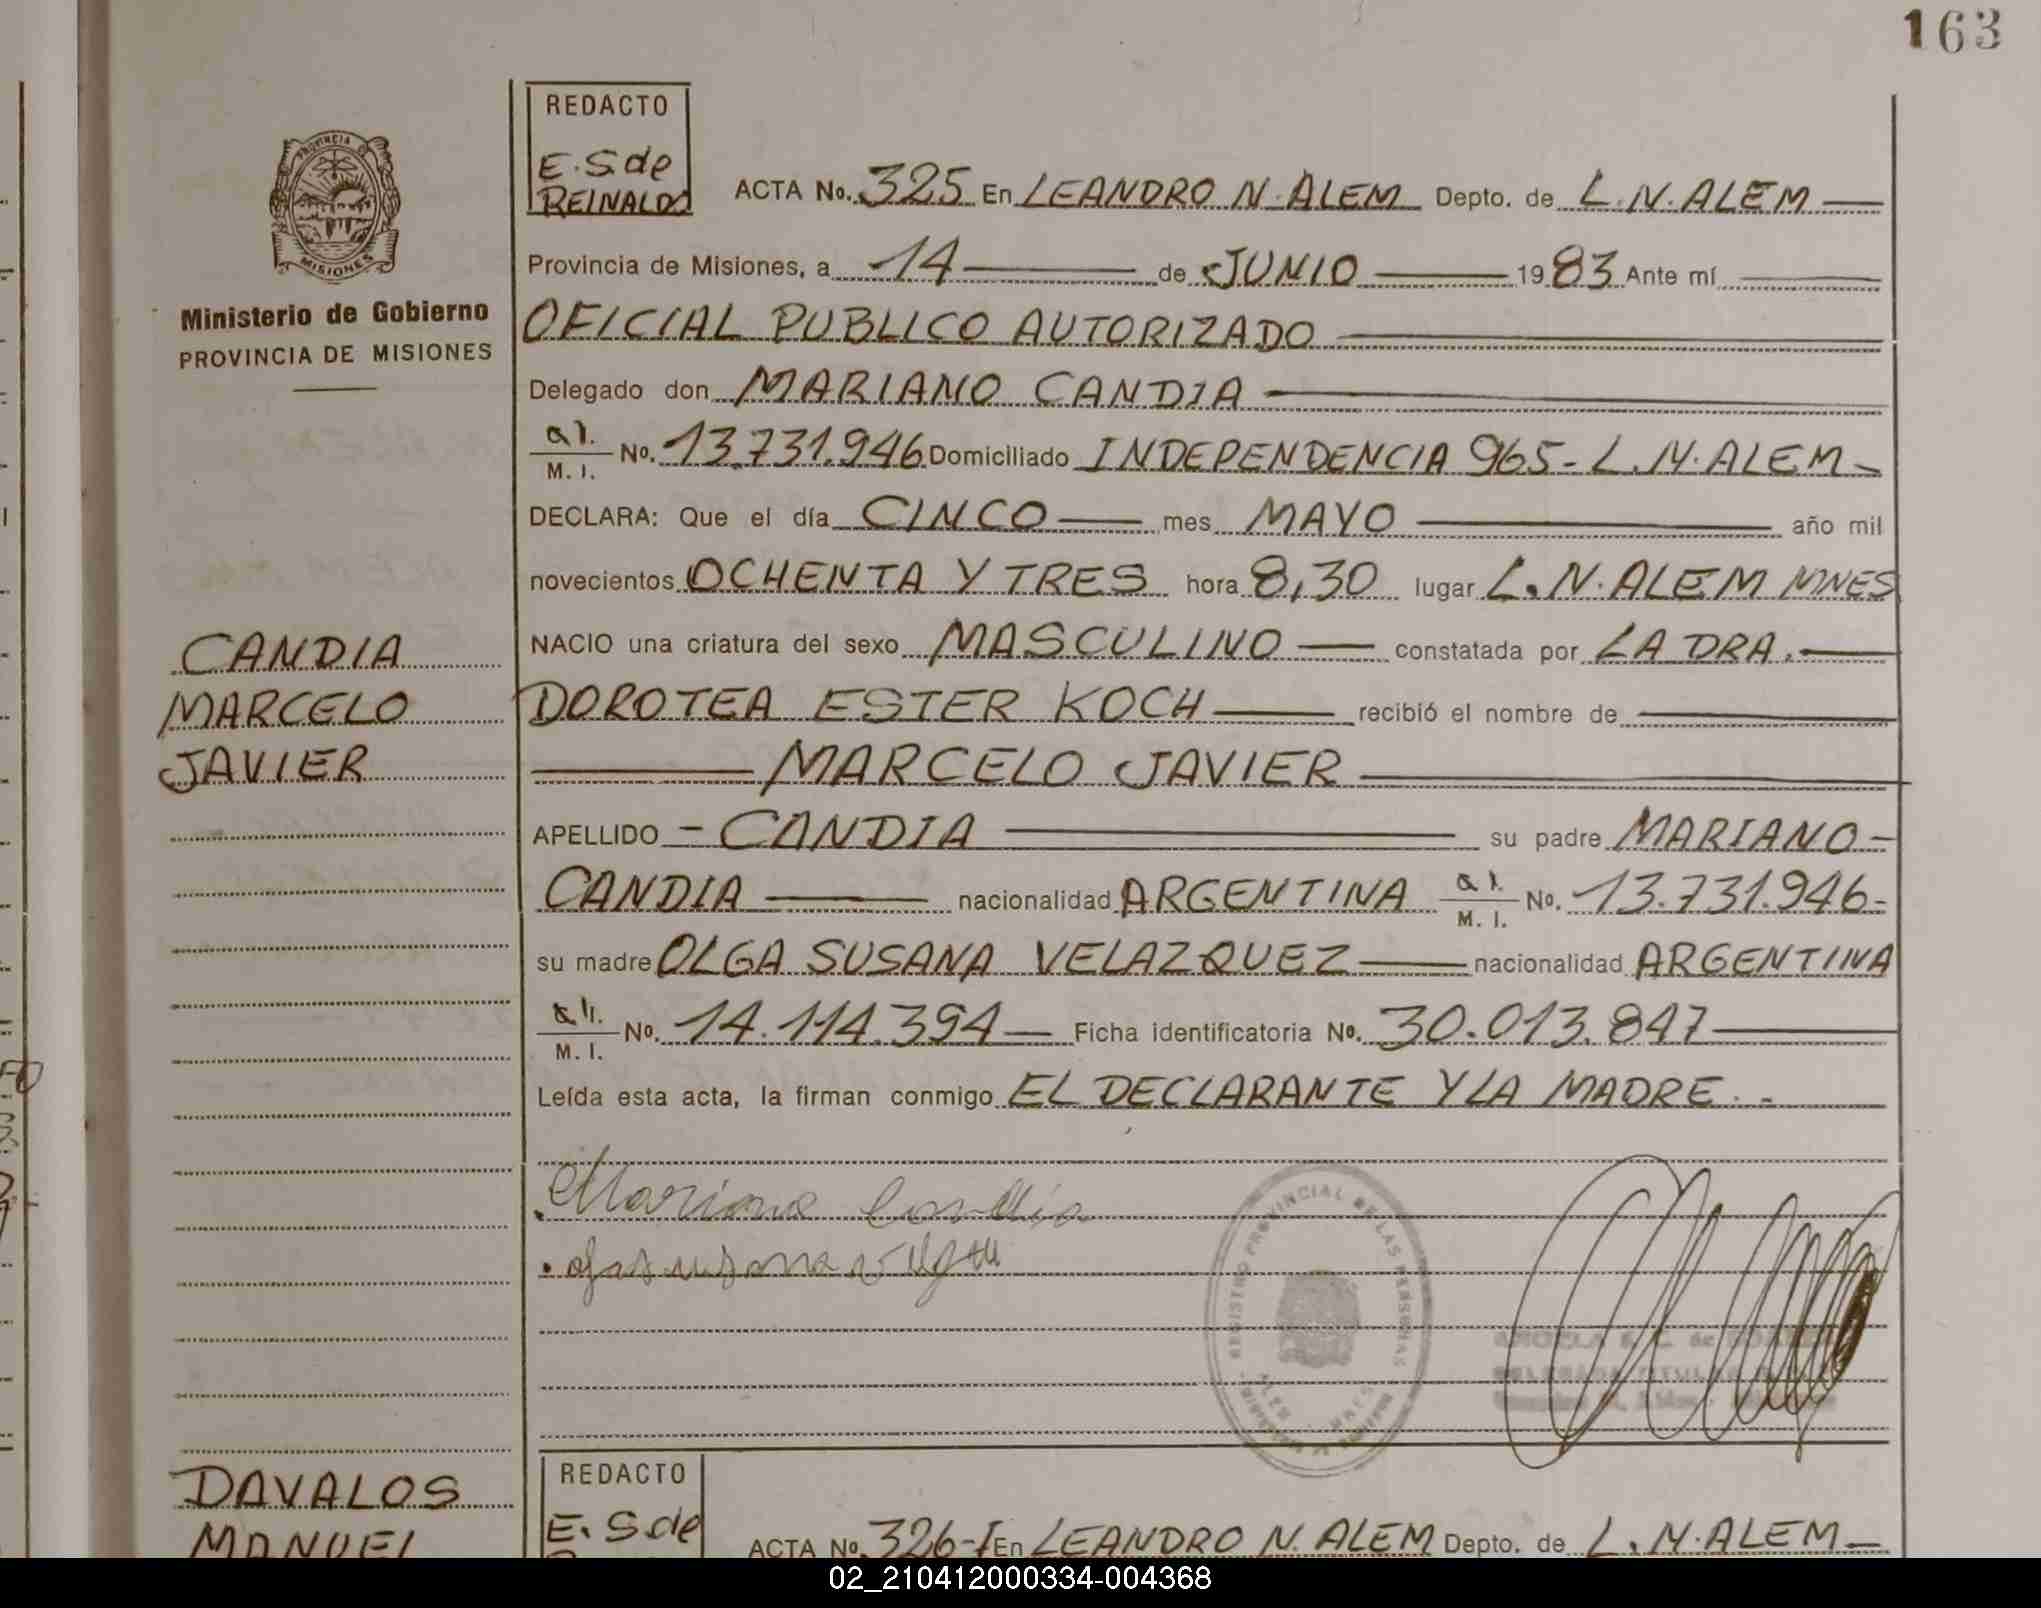 163
REDACTO
E. S. de
REINALDO
PROVINCIA DE
MISIONES
Ministerio de Gobierno
PROVINCIA DE MISIONES
ACTA No. 325 En LEANDRO N. ALEM Depto. de L.N. ALEM
Provincia de Misiones, a 14 de JUNIO 1983 Ante mí
OFICIAL PUBLICO AUTORIZADO
Delegado don MARIANO CANDIA
M. I. No. 13.731.946 Domiciliado INDEPENDENCIA 965- L.N. ALEM-
DECLARA: Que el día CINCO mes MAYO año mil
novecientos OCHENTA Y TRES hora 8,30 lugar L.N. ALEM MNES
NACIO una criatura del sexo MASCULINO constatada por LA DRA.
DOROTEA ESTER KOCH recibió el nombre de
MARCELO JAVIER
APELLIDO - CANDIA su padre MARIANO-
CANDIA nacionalidad ARGENTINA M. I. No. 13.731.946-
su madre OLGA SUSANA VELAZQUEZ nacionalidad ARGENTINA
M. I. No. 14.114.394 Ficha identificatoria No. 30.013.847
Leída esta acta, la firman conmigo EL DECLARANTE Y LA MADRE. -
CANDIA
MARCELO
JAVIER
Mariano Candia
REGISTRO PROVINCIAL DE LAS PERSONAS
DAVALOS
MANUEL
REDACTO
E. S. de
ACTA No. 326-I En LEANDRO N. ALEM Depto. de L. N. ALEM
02_210412000334-004368